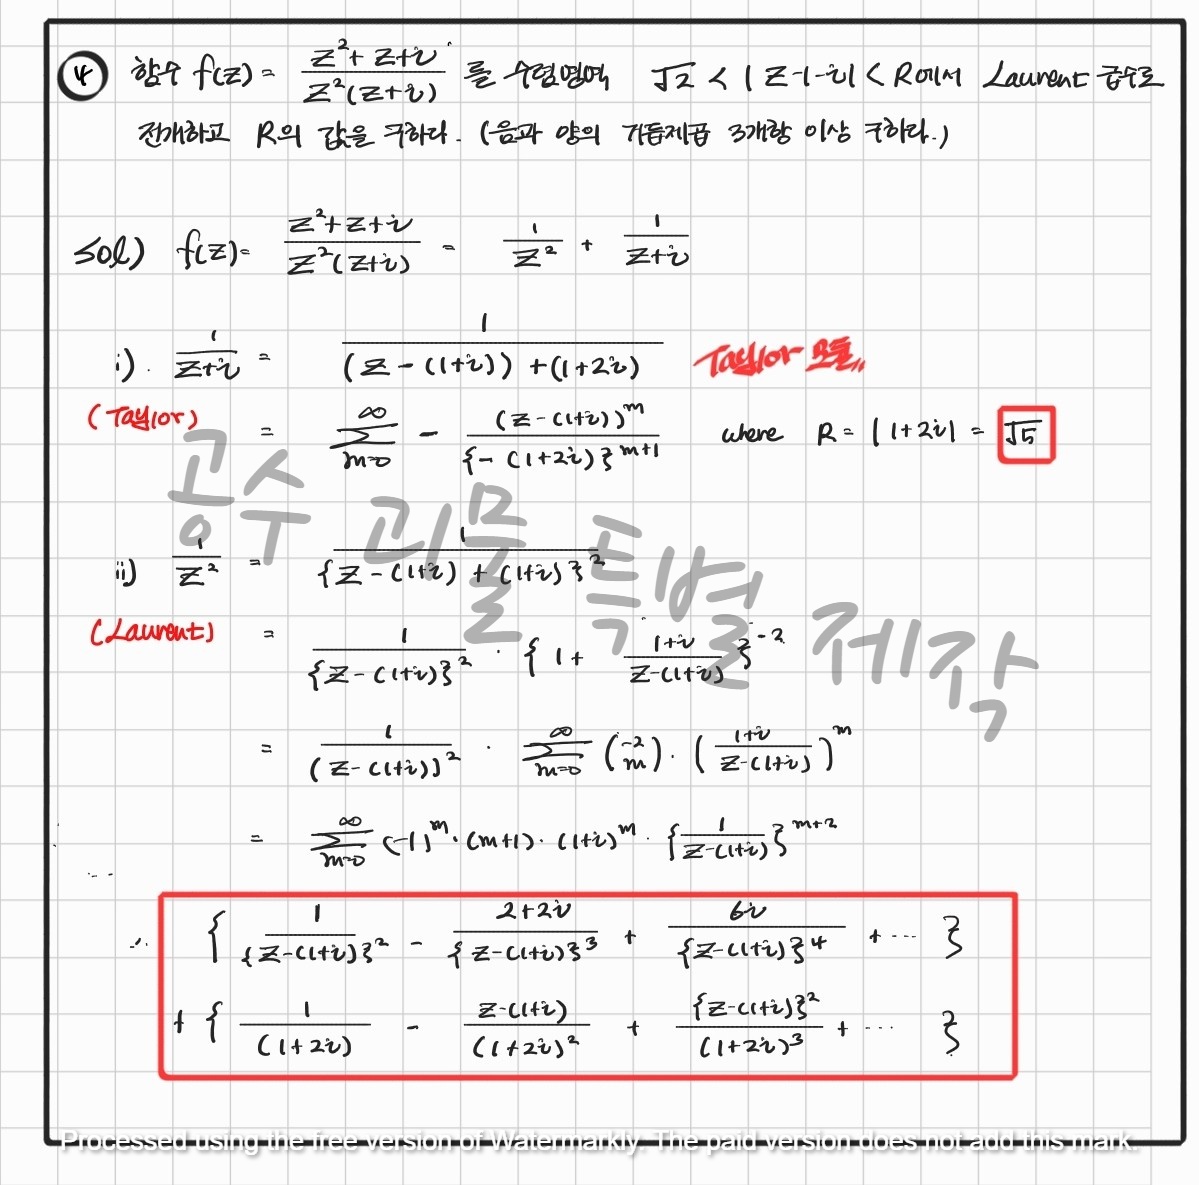 ④ 함수 f(z) = (z²+z+i)/(z²(z+i)) 를 수렴영역 √2 < |z-1-i| < R에서 Laurent 급수로
전개하고 R의 값을 구하라. (음과 양의 거듭제곱 3개항 이상 구하라.)
sol) f(z) = (z²+z+i)/(z²(z+i)) = 1/z² + 1/(z+i)
i). 1/(z+i) = 1/((z-(1+i))+(1+2i)) Taylor 모듈
(Taylor) = ∑_{m=0}^{∞} - (z-(1+i))^m/{-(1+2i)}^{m+1} where R = |1+2i| = √5
공수 괴물 특별 제작
ii) 1/z² = 1/{z-(1+i)+(1+i)}²
(Laurent) = 1/{z-(1+i)}² · {1+ (1+i)/(z-(1+i))}^{-2}
= 1/(z-(1+i))² · ∑_{m=0}^{∞} (-2 m) · ((1+i)/(z-(1+i)))^m
= ∑_{m=0}^{∞} (-1)^m · (m+1) · (1+i)^m · {1/(z-(1+i))}^{m+2}
∴ { 1/{z-(1+i)}² - (2+2i)/{z-(1+i)}³ + 6i/{z-(1+i)}⁴ + ··· }
+ { 1/(1+2i) - (z-(1+i))/(1+2i)² + {z-(1+i)}²/(1+2i)³ + ··· }
Processed using the free version of Watermarkly. The paid version does not add this mark.